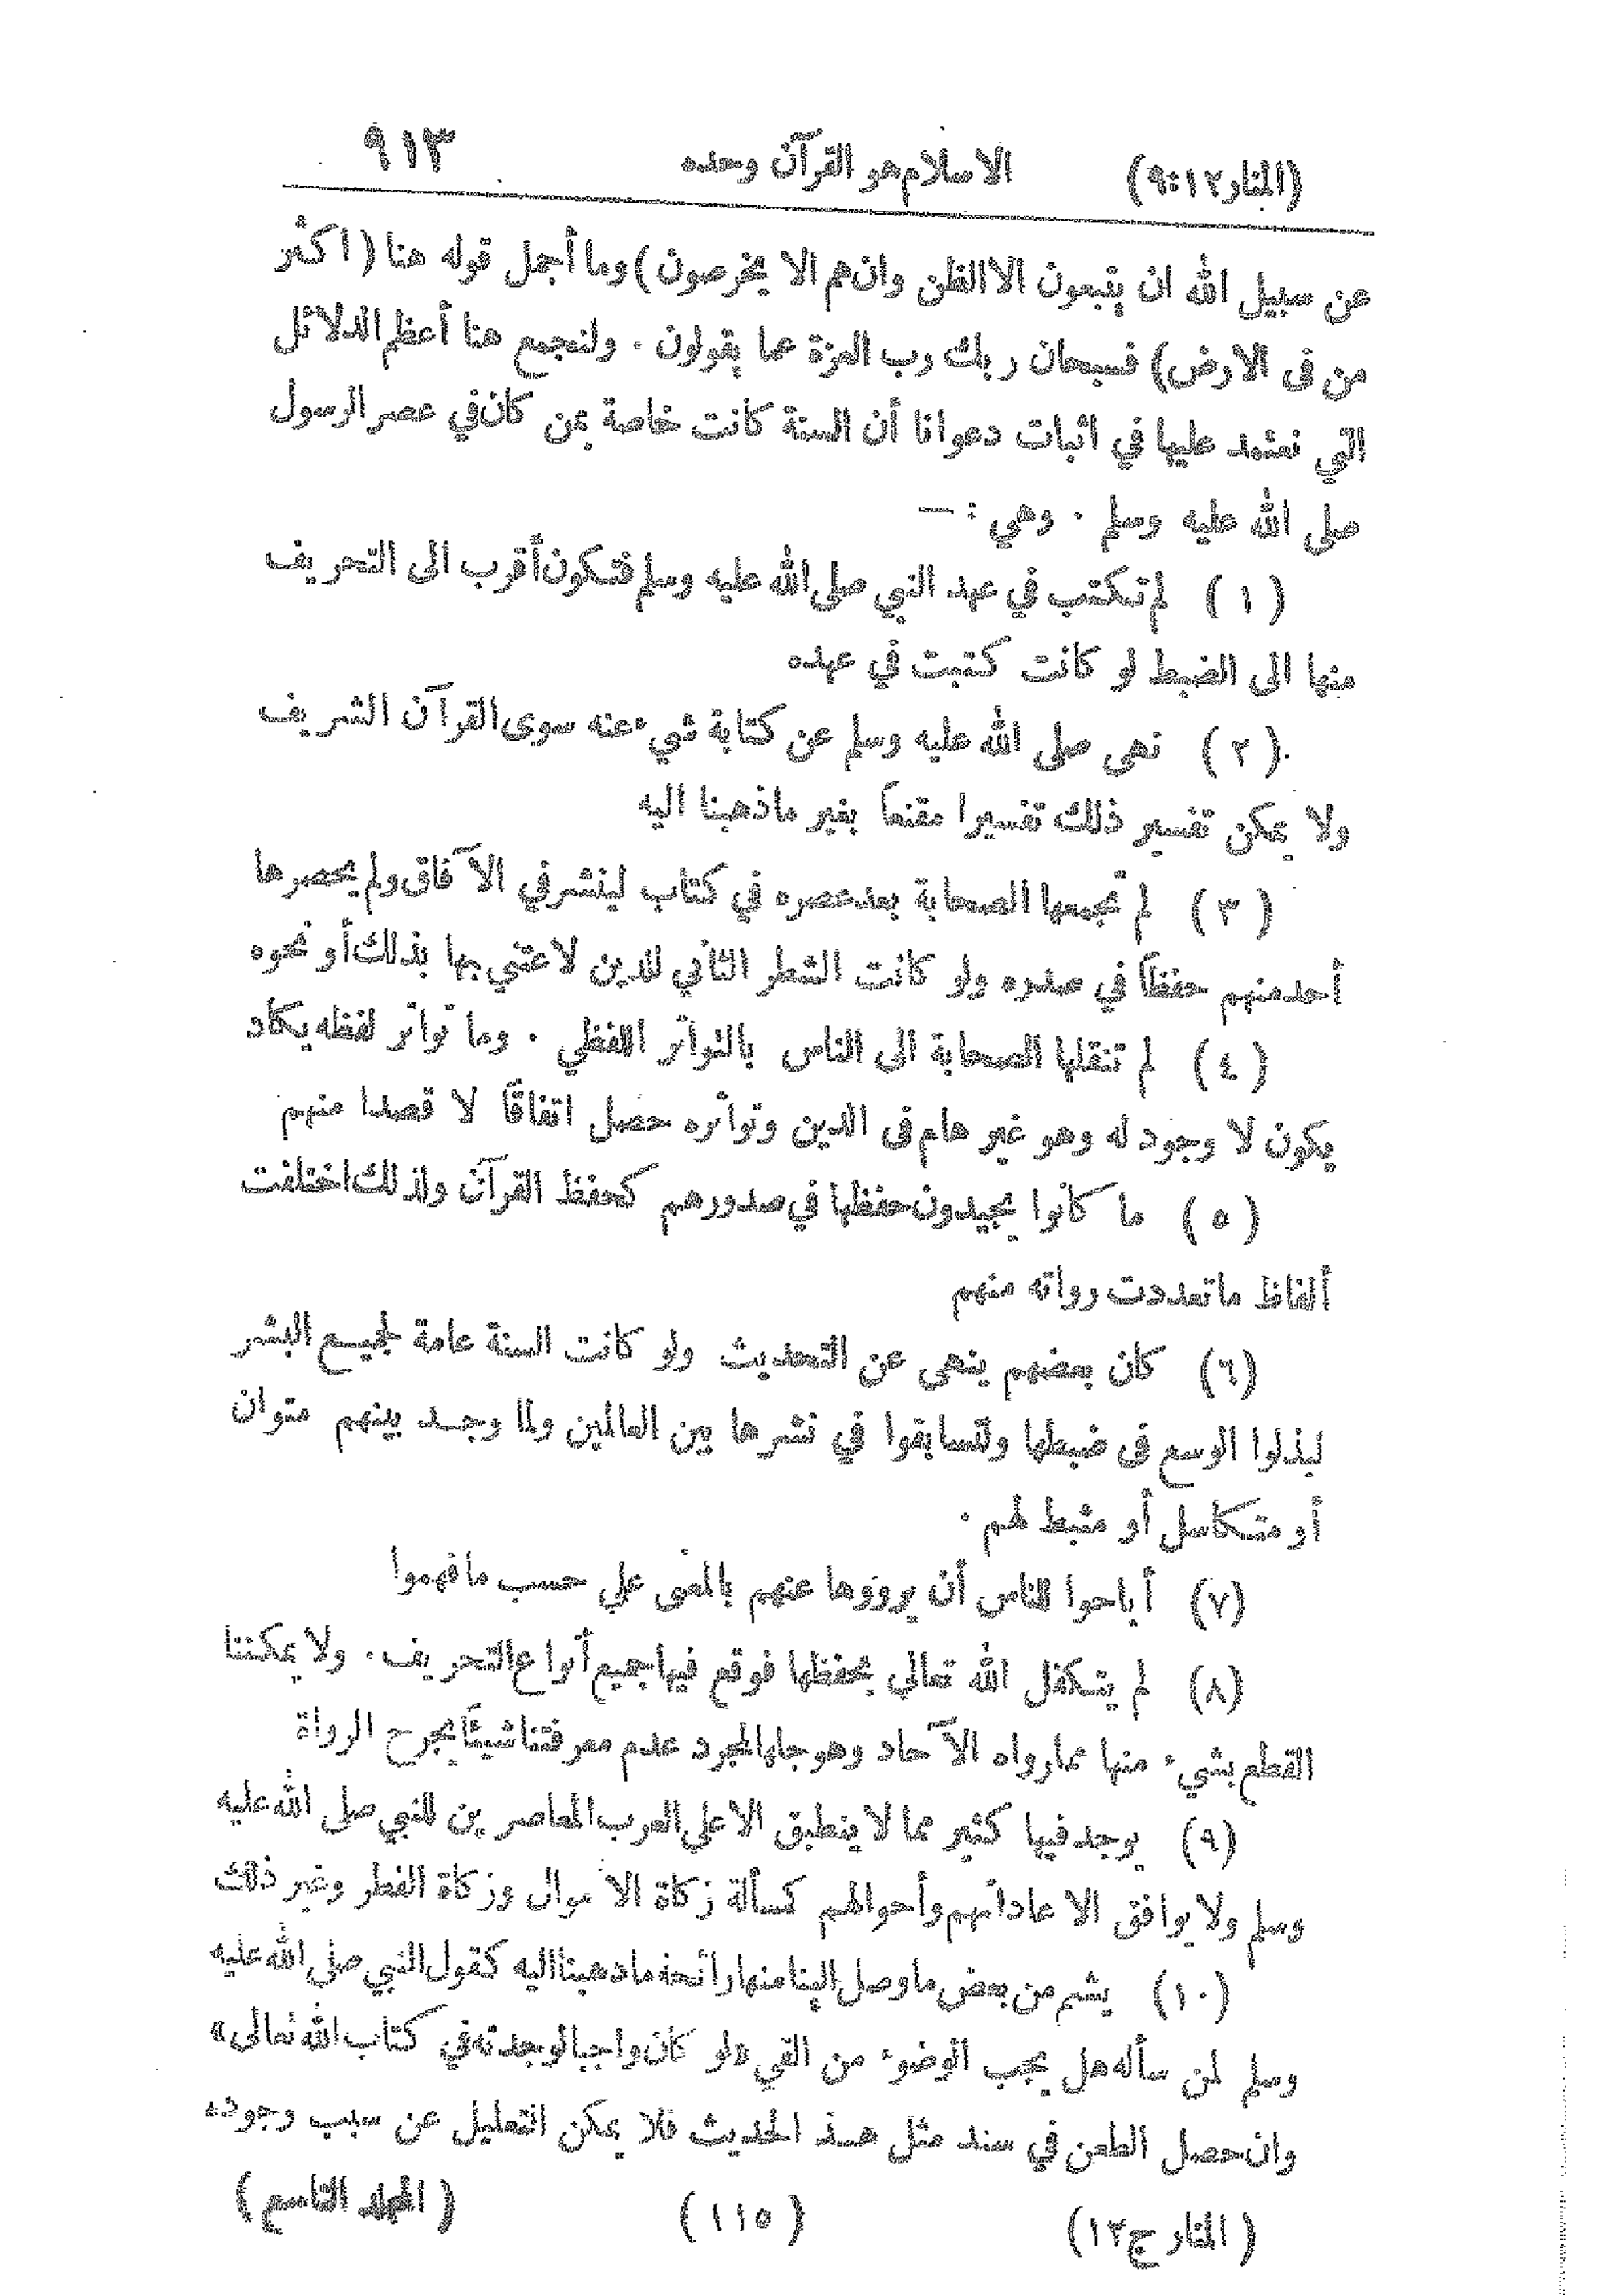 (المنار ١٢:٩) الاسلام هو القرآن وحده ٩١٣
عن سبيل الله ان يتبعون الا الظن وان هم الا يخرصون) وما أجمل قوله هنا (اكثر
من فى الارض) فسبحان ربك رب العزة عما يقولون . ولنجمع هنا أعظم الدلائل
التي نعتمد عليها في اثبات دعوانا أن السنة كانت خاصة بمن كان في عصر الرسول
صلى الله عليه وسلم . وهي : —
(١) لم تكتب في عهد النبي صلى الله عليه وسلم فتكون أقرب الى التحريف
منها الى الضبط لو كانت كتبت في عهده
(٢) نهى صلى الله عليه وسلم عن كتابة شيء عنه سوى القرآن الشريف
ولا يمكن تفسير ذلك تفسيرا مقنعاً بغير ماذهبنا اليه
(٣) لم تجمعها الصحابة بعد عصره في كتاب لينشر في الآفاق ولم يحصرها
أحد منهم حفظاً في صدره ولو كانت الشطر الثاني للدين لاعتني بها بذلك أو نحوه
(٤) لم تنقلها الصحابة الى الناس بالتواتر اللفظي . وما تواتر لفظه يكاد
يكون لا وجود له وهو غير هام فى الدين وتواتره حصل اتفاقاً لا قصدا منهم
(٥) ما كانوا يجيدون حفظها في صدورهم كحفظ القرآن ولذلك اختلفت
ألفاظ ماتعددت رواته منهم
(٦) كان بعضهم ينهى عن التحديث ولو كانت السنة عامة لجميع البشر
لبذلوا الوسع فى ضبطها ولتسابقوا في نشرها بين العالمين ولما وجد بينهم متوان
أو متكاسل أو مثبط لهم .
(٧) أباحوا للناس أن يرووها عنهم بالمعنى على حسب مافهموا
(٨) لم يتكفل الله تعالى بحفظها فوقع فيها جميع أنواع التحريف . ولا يمكننا
القطع بشيء منها مما رواه الآحاد وهو جلها لمجرد عدم معرفتنا شيئاً يجرح الرواة
(٩) يوجد فيها كثير مما لا ينطبق الا على العرب المعاصرين للنبي صلى الله عليه
وسلم ولا يوافق الا عاداتهم وأحوالهم كمسألة زكاة الاموال وزكاة الفطر وغير ذلك
(١٠) يشم من بعض ماوصل الينا منها رائحة ماذهبنا اليه كقول النبي صلى الله عليه
وسلم لمن سأله هل يجب الوضوء من القيء «لو كان واجبا لوجدته في كتاب الله تعالى»
وان حصل الطعن في سند مثل هذ الحديث فلا يمكن التعليل عن سبب وجوده
(المنار ج ١٢) (١١٥) (المجلد التاسع)